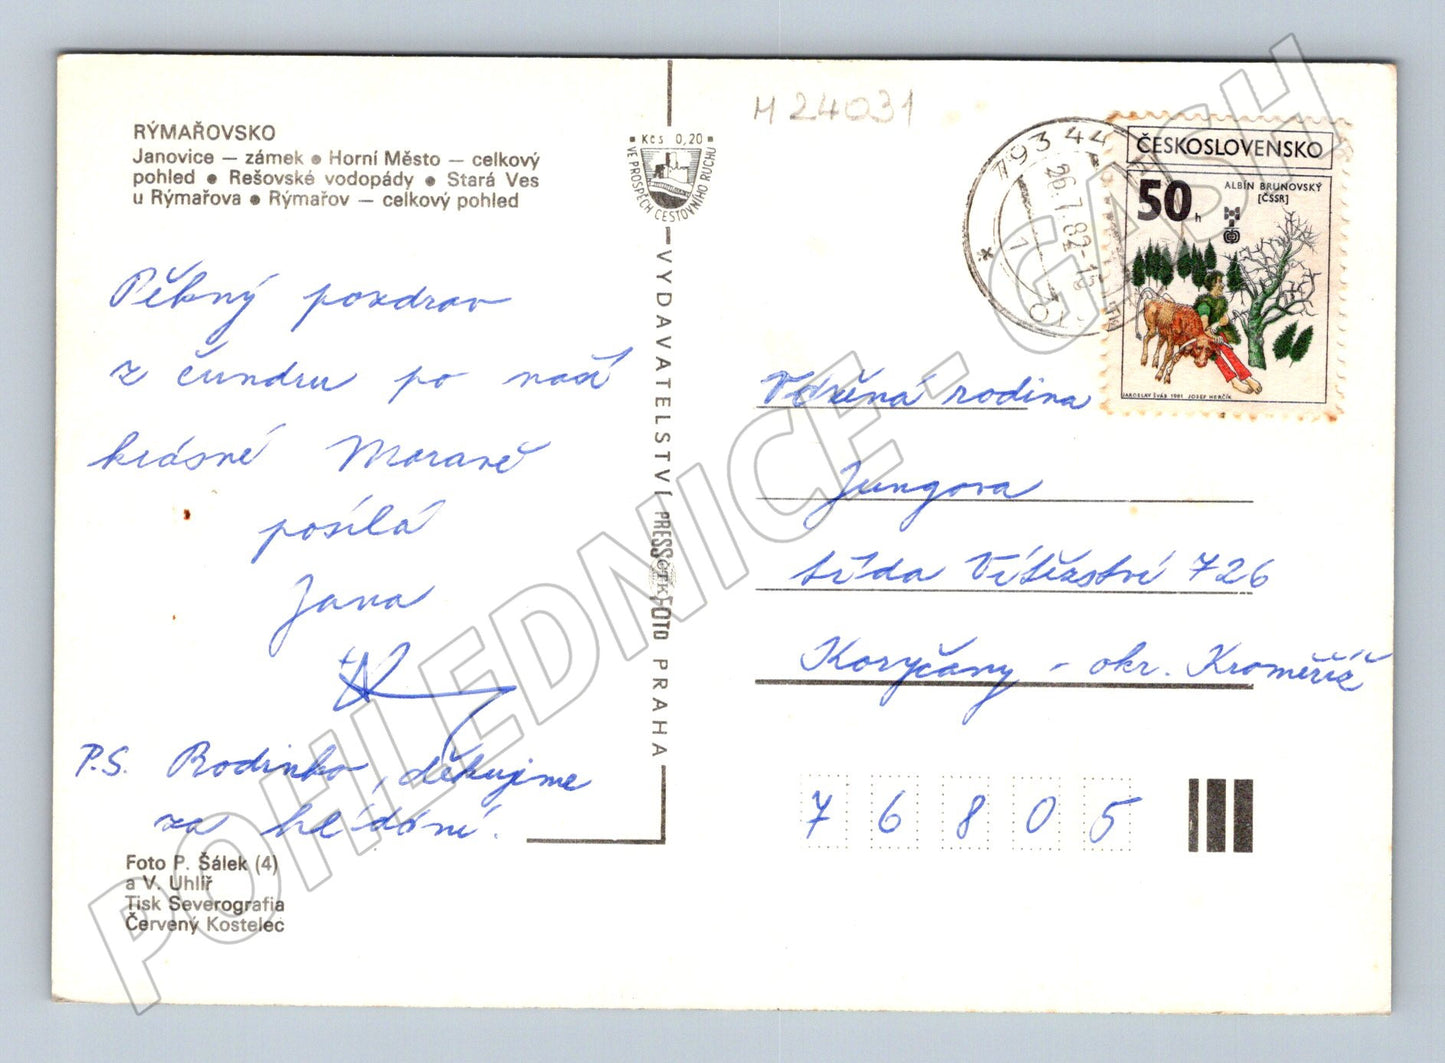 RÝMAŘOVSKO
Janovice — zámek • Horní Město — celkový
pohled • Rešovské vodopády • Stará Ves
u Rýmařova • Rýmařov — celkový pohled
Pěkný pozdrav
z čundru po naší
krásné Moravě
posílá
Jana
P.S. Rodinko, děkujeme
za hlídání.
Foto P. Šálek (4)
a V. Uhlíř
Tisk Severografia
Červený Kostelec
Kčs 0,20
VE PROSPĚCH CESTOVNÍHO RUCHU
VYDAVATELSTVÍ PRESSFOTO PRAHA
ČTK
M 24031
793 44
26.7.82-15
ČESKOSLOVENSKO
50 h
ALBÍN BRUNOVSKÝ
[ČSSR]
JAROSLAV ŠVÁB 1981 JOSEF HERČÍK
Vážená rodina
Jungova
třída Vítězství 726
Koryčany - okr. Kroměříž
76805
POHLEDNICE - GASH